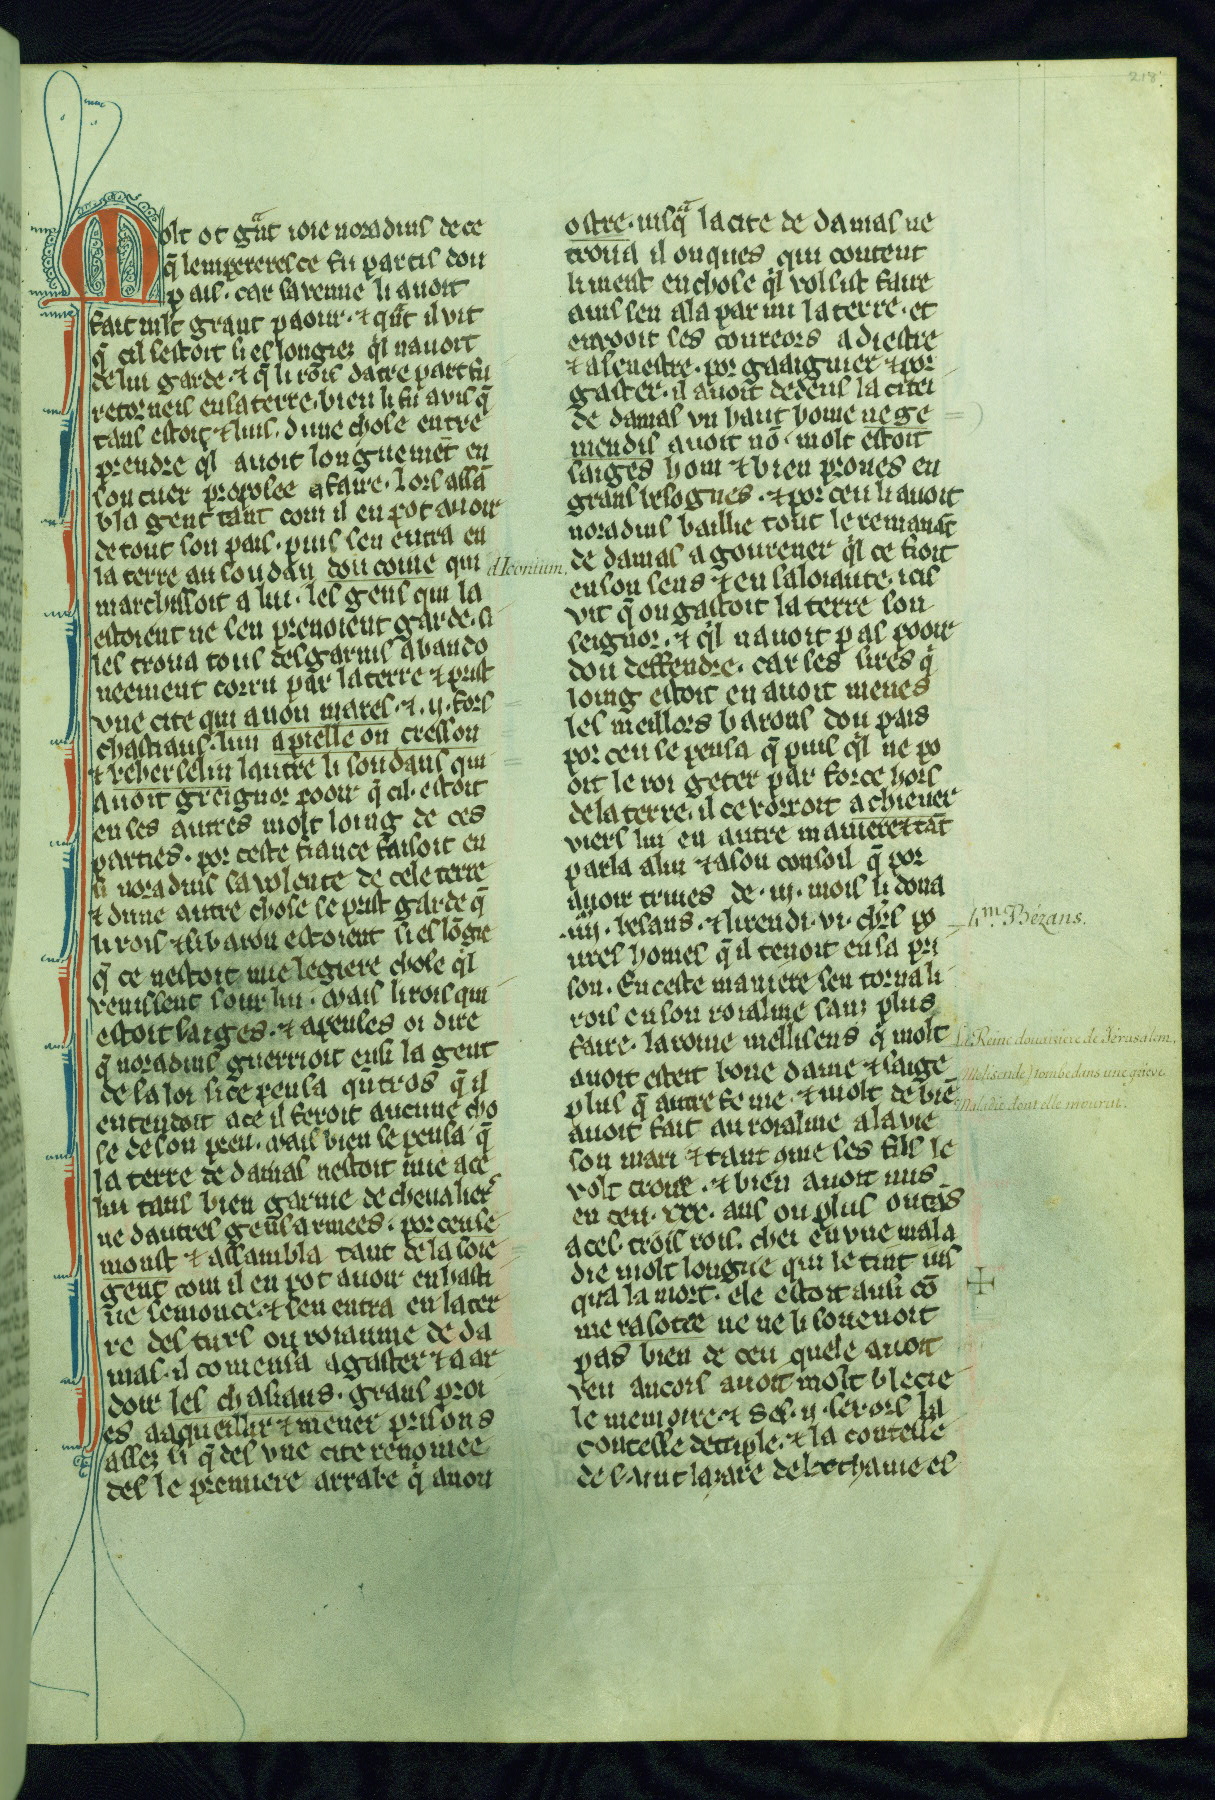 218
Molt ot gᵃnt ioie noradins de ce
q̄ lempereres ce fu partis dou
pais. car sa uenue li auoit
fait mlt grant paour. ⁊ qᵃnt il uit
q̄ cil sestoit si eslongiez ql nauoit
de lui garde. ⁊ q̄ li rois datre part fu
retorneis en sa terre. bien li fu auis q̄
tans estoit ⁊ luis. dune chose entre
prendre ql auoit longuemēt en
son cuer proposee a faire. lors assā
bla gent tant com il en pot auoir
de tout son pais. puis sen entra en
la terre au soudan dou coine qui
marchissoit a lui. les gens qui la
estoient ne sen prenoient garde. si
les troua tous desgarnis abando
neement corru par la terre ⁊ prist
vne cite qui a nou mares. ⁊ .ij. fors
chastiaus. lun apielle on cresson
⁊ reherselin lautre li soudans qui
auoit greignor pooir q̄ cil. estoit
en ses autres molt loing de ces
parties. por ceste fiance faisoit en
si noradins sa volente de cele terre
⁊ dune autre chose se prist garde q̄
li rois ⁊ si baron estoient si es lōgie
q̄ ce nestoit mie legiere chose ql
venissent sour lui. Mais li rois qui
estoit saiges. ⁊ apensés oi dire
q̄ noradins guerrioit ensi la gent
de la loi si ce pensa qūtros q̄ il
entendoit ace il feroit aucune cho
se de son preu. Mais bien se pensa q̄
la terre de damas nestoit mie ace
lui tans bien garnie de cheualier
ne dautres gens armees. por ceu se
monst ⁊ assambla tant de la soie
gent com il en pot auoir en hasti
ue semonce. ⁊ sen entra en la ter
re des turs ou roiaume de da
mas. il comensa a gaster ⁊ a ar
doir les chasiaus. grans proi
es aaqueillir ⁊ mener prisons
assez si q̄ des vne cite renomee
des le premiere arrabe q̄ a nou
d'Iconium.
ostre. iusqᵃ la cite de damas ne
troua il onques qui content
li meist en chose ql vossist faire
ains sen ala par mi la terre. et
enuooit ses coureors a diestre
⁊ a senestre. por gaaignier ⁊ por
gaster. il auoit dedens la citei
de damas vn haut home nege
mendis auoit nō. molt estoit
saiges hom ⁊ bien proues en
grans besognes. ⁊ por ceu li auoit
noradins baillie tout le remanāt
de damas a gouerner ql ce fioit
en son sens ⁊ en sa loiaute. icis
vit q̄ on gastoit la terre son
seignor. ⁊ ql nauoit pas pooir
dou deffendre. car ses sires q̄
loing estoit en auoit menes
les meillors barons dou pais
por ceu se pensa q̄ puis ql ne po
oit le roi geter par force hors
de la terre. il ce vorroit a chieuer
viers lui en autre maniere ⁊ tāt
parla a lui ⁊ a son consoil q̄ por
auoir triues de .iij. mois li dona
.iiij. besans. ⁊ li rendi .vi. chrs po
ures homes q̄ il tenoit en sa pri
son. En ceste maniere sen torna li
rois en son roialme sanz plus
faire. la roine mellisens q̄ molt
auoit esteit bone dame ⁊ saige
plus q̄ autre feme. ⁊ molt de biē
auoit fait au roialme a la vie
son mari ⁊ tant ome ses fils le
volt croire. ⁊ bien auoit mis
en ceu .xxx. ans ou plus outᵃs
aces trois rois. chei en vne mala
die molt longue qui le tint ius
qua la mort. ele estoit ausi cō
me rasotee ne ne li souenoit
pas bien de ceu quele auoit
veu ancois auoit molt blecie
le memoire. ⁊ ses .ij. serors la
contesse detriple. ⁊ la contesse
de saint lazare de bethanie es
4.ᵐ Bézans.
La Reine douairiere de Jérusalem,
Melisende, tombe dans une griéve
Maladie dont elle mourut.